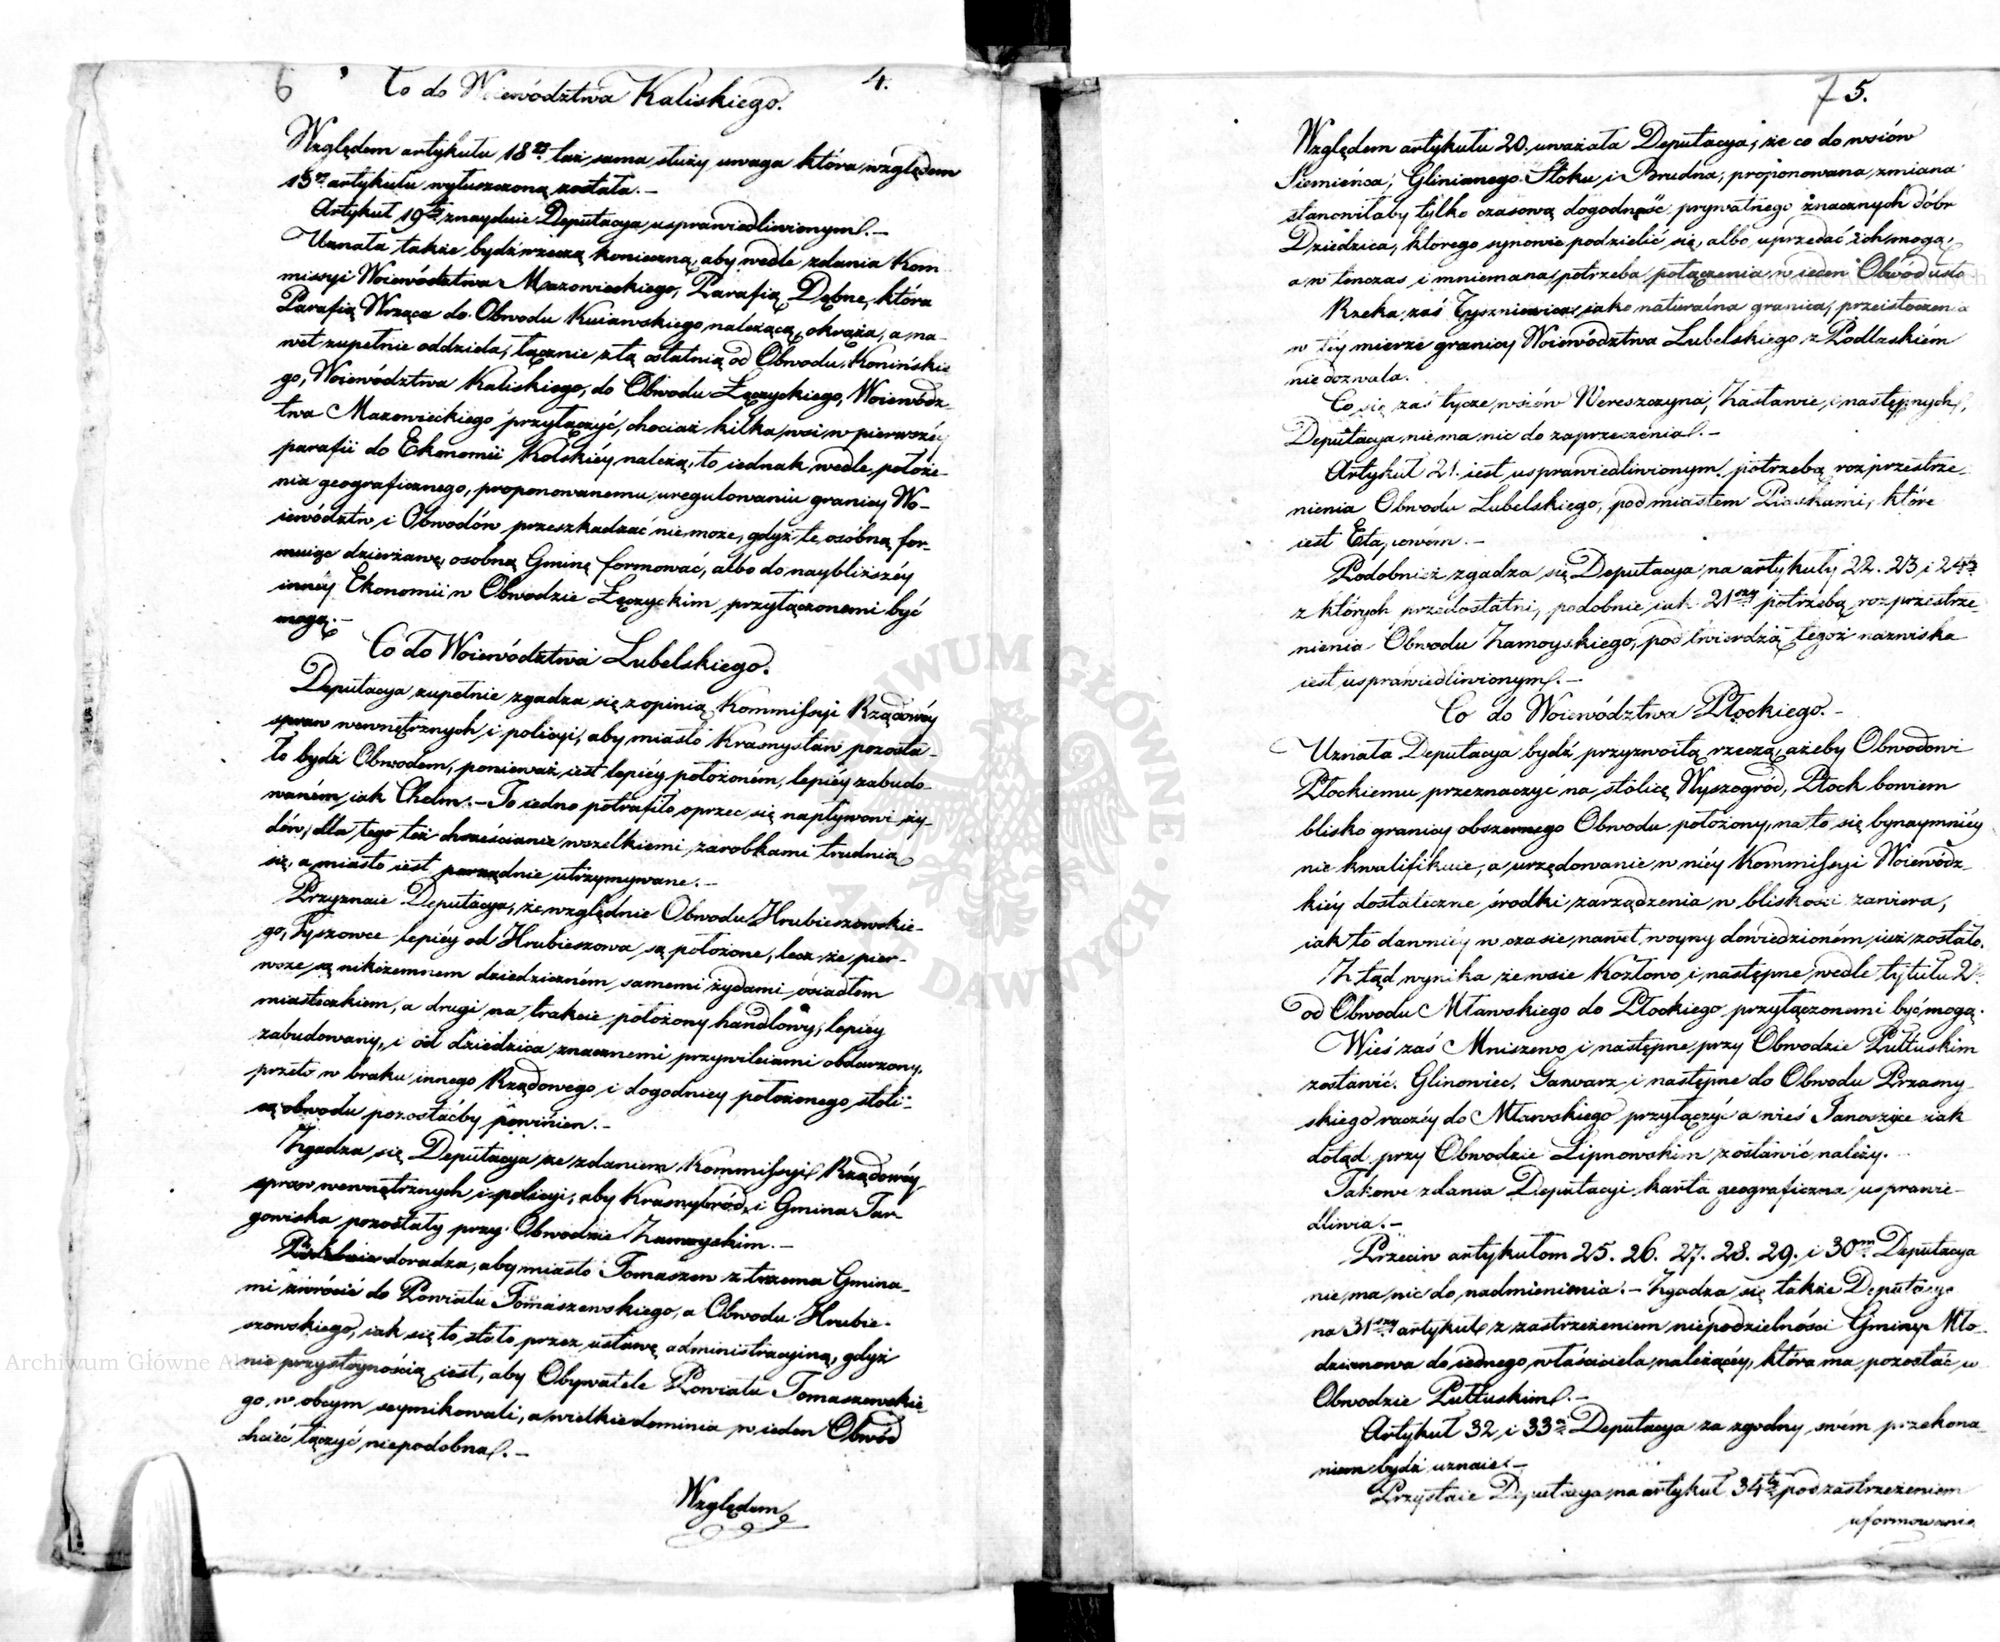 6
4.
Co do Woiewództwa Kaliskiego.
Względem artykułu 18go taż sama służy uwaga która względem
15go artykułu wyłuszczoną została.–
Artykuł 19ty znayduie Deputacya usprawiedliwionym.–
Uznała także bydź rzeczą konieczną, aby wedle zdania Kom
missyi Woiewództwa Mazowieckiego, Parafią Dębne, która
Parafią Wrząca do Obwodu Kuiawskiego należącą, okrąża, a na-
wet zupełnie oddziela, łącznie z tą ostatnią od Obwodu Konińskie
go, Woiewództwa Kaliskiego, do Obwodu Łęczyckiego, Woiewódz-
twa Mazowieckiego przyłączyć, chociaż kilka wsi w pierwszéy
parafii do Ekonomii Kolskiéy należą, to iednak wedle położe-
nia geograficznego, proponowanemu uregulowaniu granicy Wo-
iewództw i Obwodów przeszkadzać nie może, gdyż te osóbną for-
muiąc dzierżawę, osobną Gminę formować, albo do naybliższéy
innéy Ekonomii w Obwodzie Łęczyckim przyłączonemi być
mogą.–
Co do Woiewództwa Lubelskiego.
Deputacya zupełnie zgadza się z opinią Kommissyi Rządowéy
spraw wewnętrznych i policyi, aby miasto Krasnystaw pozosta-
ło bydź Obwodem, ponieważ iest lepiéy położoném, lepiéy zabudo-
waném, iak Chełm.– To iedno potrafiło oprzec się napływowi ży-
dów, dla tego też chrześcianie wszelkiemi zarobkami trudnią
się, a miasto iest porządnie utrzymywane.–
Przyznaie Deputacya, że względnie Obwodu Hrubieszowskie-
go, Tyszowce lepiéy od Hrubieszowa są położone, lecz że pier-
wsze są nikczemnem dziedziczném samemi żydami osiadłem
miasteczkiem, a drugi na trakcie położony handlowy, lepiéy
zabudowany, i od dziedzica znacznemi przywileiami obdarzony,
przeto w braku innego Rządowego i dogodniéy położonego stoli-
cą obwodu pozostaćby powinien.–
Zgadza się Deputacya ze zdaniem Kommissyi Rządowéy
spraw wewnętrznych i policyi, aby Krasnybród, i Gmina Tar
gowiska pozostały przy Obwodzie Zamoyskim.–
doradza, aby miasto Tomaszow z trzema Gmina-
mi zwrócić do Powiatu Tomaszewskiego, a Obwodu Hrubie-
szowskiego, iak się to stało przez ustawę administracyiną, gdyż
nie przystoynością iest, aby Obywatele Powiatu Tomaszewskie
go, w obcym seymikowali, a wielkie dominia w ieden Obwód
chcieć łączyć niepodobna.–
Względem
7 5.
Względem artykułu 20. uważała Deputacya, że co do wsiów
Siemieńca, Glinianego Stoku, i Brudna, proponowana, zmiana
stanowiłaby tylko czasową dogodność prywatnego znacznych dóbr
Dziedzica, którego synowie podzielić się, albo uprzedać ich mogą,
a w tenczas i mniemana potrzeba połączenia w ieden Obwód usta
Rzeka zaś Tyszniewica, iako naturalna granica, przeistoczenia
w téy mierze granicy Woiewództwa Lubelskiego z Podlaskiém
nie dozwala.
Co się zaś tycze wsiów Wereszczyna, Zastawie, i następnych,
Deputacya nie ma nic do zaprzeczenia.–
Artykuł 21. iest usprawiedliwionym potrzebą rozprzestrze-
nienia Obwodu Lubelskiego, pod miastem Piaskami, które
iest Etapowém.–
Podobnież zgadza się Deputacya na artykuły 22. 23 i 24ty
z których przedostatni, podobnie iak 21szy potrzebą rozprzestrze-
nienia Obwodu Zamoyskiego, pod twierdzą tegoż nazwiska
iest usprawiedliwionym.–
Co do Woiewództwa Płockiego.–
Uznała Deputacya bydź przyzwoitą rzeczą, ażeby Obwodowi
Płockiemu przeznaczyć na stolicę Wyszogród, Płock bowiem
blisko granicy obszernego Obwodu położony, na to się bynaymniéy
nie kwalifikuie, a urzędowanie w niéy Kommissyi Woiewódz-
kiéy dostateczne środki zarządzenia w bliskości zawiera,
iak to dawniéy w czasie nawet woyny dowiedzioném iuż zostało.
Ztąd wynika że wsie Kozłowo i następne, wedle tytułu 2go
od Obwodu Mławskiego do Płockiego przyłączonemi być mogą.
Wieś zaś Mniszewo i następne przy Obwodzie Pułtuskim
zostawić. Glinowiec, Gawarz i następne do Obwodu Przasny-
skiego raczéy do Mławskiego przyłączyć a wieś Janoszyce iak
dotąd przy Obwodzie Lipnowskim zostawić należy.
Takowe zdania Deputacyi karta geograficzna usprawie-
dliwia.–
Przeciw artykułom 25. 26. 27. 28. 29. i 30m Deputacya
nie ma nic do nadmienienia.– Zgadza się także Deputacya
na 31szy artykuł z zastrzeżeniem niepodzielności Gminy Mło-
dzianowa do iednego właściciela należącéy, która ma pozostać w
Obwodzie Pułtuskim.–
Artykuł 32 i 33ci Deputacya za zgodny swém przekona-
niem bydź uznaie.–
Przystaie Deputacya na artykuł 34ty pod zastrzeżeniem
uformowania
ARCHIWUM GŁÓWNE AKT DAWNYCH
Archiwum Główne Akt Dawnych
Archiwum Główne Ak